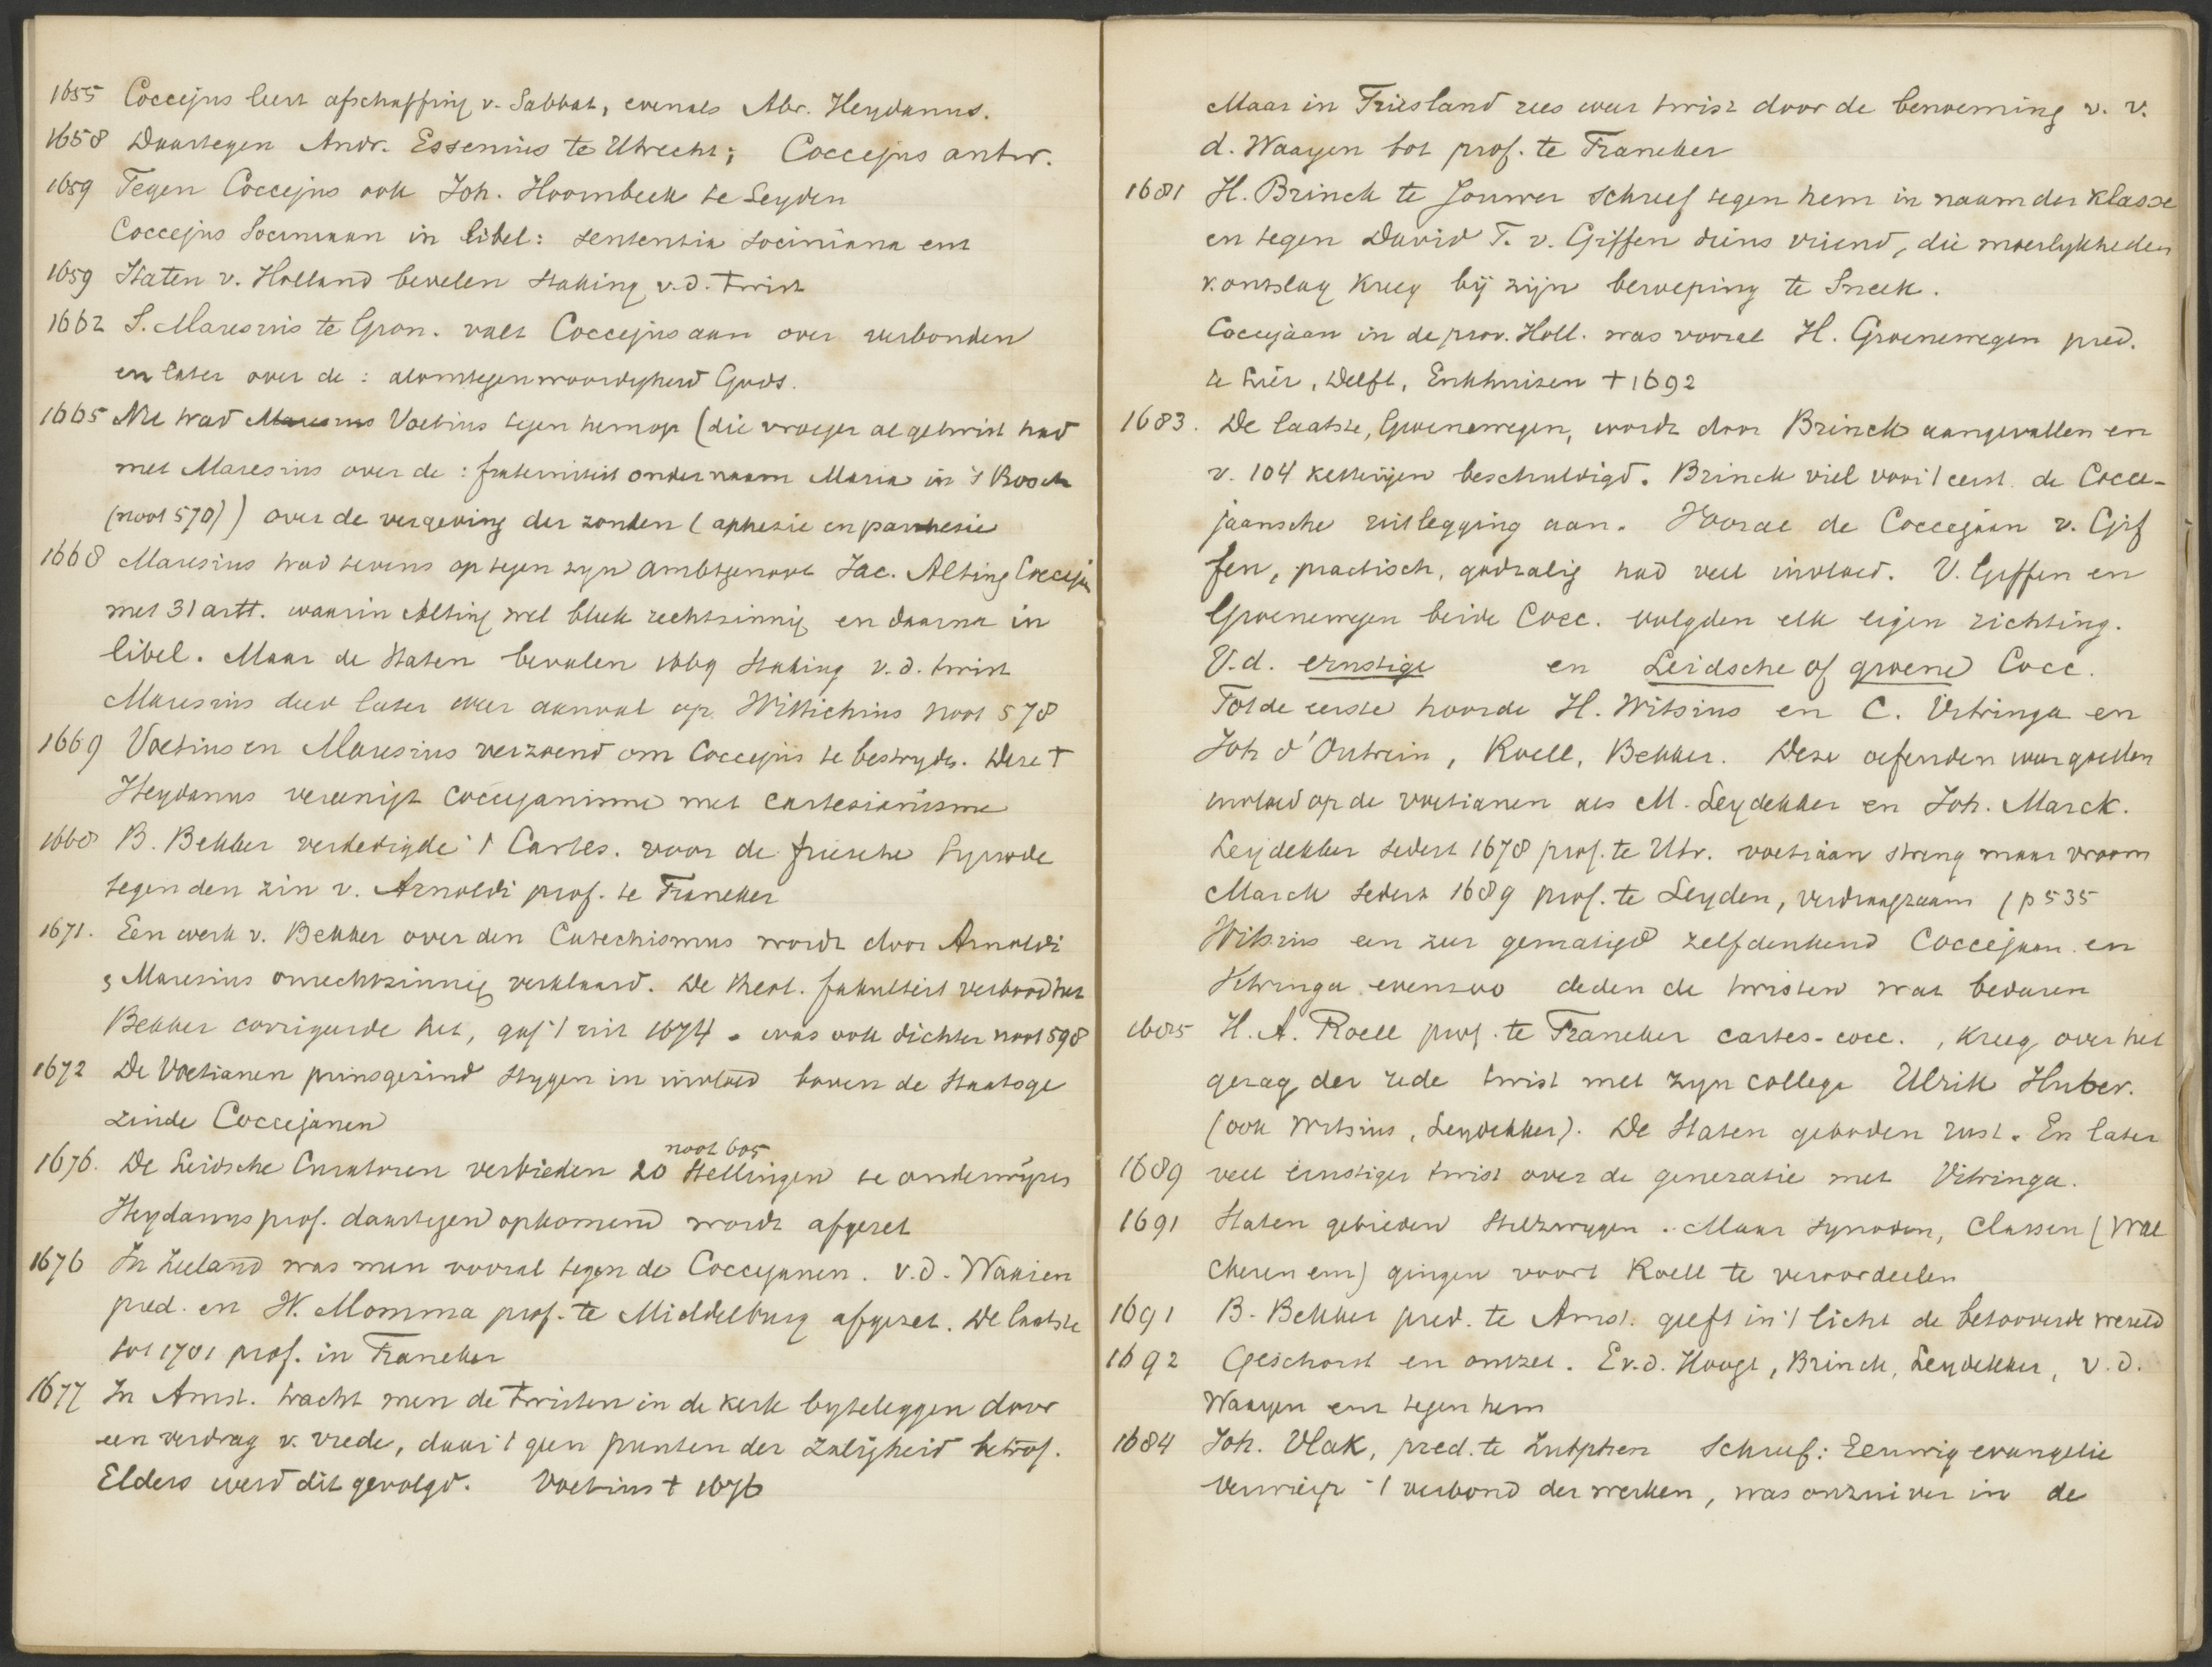 1655 Coccejus leert afschaffing v. Sabbat, evenals Abr. Heydanus.
1658 Daartegen Andr. Essenius te Utrecht; Coccejus antw.
1659 Tegen Coccejus ook Joh. Hoornbeek te Leyden
Coccejus Sociniaan in libel: sententia sociniana enz
1659 Staten v. Holland bevelen staking v.d. twist
1662 S. Maresius te Gron. valt Coccejus aan over verbonden
en later over de: alomtegenwoordigheid Gods.
1665 Nu trad Maresius Voetius tegen hem op (die vroeger al getwist had
met Maresius over de: fraterniteit onder naam Maria in 's Bosch
(noot 570)) over de vergeving der zonden (aphesie en parrhesie
1668 Maresius trad tevens op tegen zyn ambtgenoot Jac. Alting Coccej
met 31 artt. waarin Alting wel bleek rechtzinnig en daarna in
libel. Maar de Staten bevalen 1669 staking v.d. twist
Maresius deed later weer aanval op Wittichius noot 578
1669 Voetius en Maresius verzoend om Coccejus te bestryde. Deze †
Heydanus vereenigt coccejanisme met cartesianisme
1668 B. Bekker verdedigde 't Cartes. voor de friesche Synode
tegen den zin v. Arnoldi prof. te Franeker
1671. Een werk v. Bekker over den Catechismus wordt door Arnoldi
& Maresius onrechtzinnig verklaard. De theol. fakulteit verbood het
Bekker corrigeerde het, gaf 't uit 1674. was ook dichter noot 598
1672 De Voetianen prinsgezind stygen in invloed boven de Staatsge
zinde Coccejanen
noot 605
1676. De Leidsche Curatoren verbieden 20 stellingen te onderwijzen
Heydanus prof. daartegen opkomend wordt afgezet
1676 In Zeeland was men vooral tegen de Coccejanen. v.d. Waaien
pred. en W. Momma prof. te Middelburg afgezet. De laatste
tot 1701 prof. in Franeker
1677 In Amst. tracht men de twisten in de kerk byteleggen door
een verdrag v. vrede, daar 't geen punten der zaligheid betrof.
Elders werd dit gevolgd. Voetius † 1676
Maar in Friesland rees weer twist door de benoeming v. v.
d. Waayen tot prof. te Franeker
1681 H. Brinck te Jouwer schreef tegen hem in naam der klasse
en tegen David F. v. Giffen diens vriend, die moeilykheden
v. ontslag kreeg bij zijn beroeping te Sneek.
Coccejaan in de prov. Holl. was vooral H. Groenewegen pred.
te Lier, Delft, Enkhuizen † 1692
1683. De laatste, Groenewegen, wordt door Brinck aangevallen en
v. 104 ketterijen beschuldigd. Brinck viel voor 't eerst de Cocce-
jaansche uitlegging aan. Vooral de Coccejaan v. Gif
fen, practisch, godzalig had veel invloed. V. Giffen en
Groenewegen beide Cocc. volgden elk eigen richting.
V.d. ernstige en Leidsche of groene Cocc.
Tot de eerste hoorde H. Witsius en C. Vitringa en
Joh d'Outrein, Roell, Bekker. Deze oefenden weer goeden
invloed op de voetianen als M. Leydekker en Joh. Marck.
Leydekker sedert 1678 prof. te Utr. voetiaan streng maar vroom
Marck sedert 1689 prof. te Leyden, verdraagzaam (p 535
Witsius een zeer gematigd zelfdenkend Coccejaan en
Vitringa evenzoo deden de twisten wat bedaren
1685 H. A. Roell prof. te Franeker cartes-cocc., kreeg over het
gezag der rede twist met zyn collega Ulrik Huber.
(ook Witsius, Leydekker). De Staten geboden rust. En later
1689 veel ernstiger twist over de generatie met Vitringa.
1691 Staten gebieden stilzwygen. Maar synoden, Classen (Wal
cheren enz) gingen voort Roell te veroordeelen
1691 B. Bekker pred. te Amst. geeft in 't licht de betooverde wereld
1692 Geschorst en ontzet. E v.d. Hoogt, Brinck, Leydekker, v.d.
Waayen enz tegen hem
1684 Joh. Vlak, pred. te Zutphen schreef: Eeuwig evangelie
Verwierp 't verbond der werken, was onzuiver in de